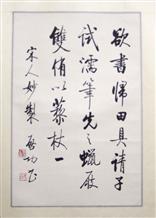 欲書歸田具請子
試濡筆先之蠟屐
雙侑以藜杖一
宋人妙製 啓功